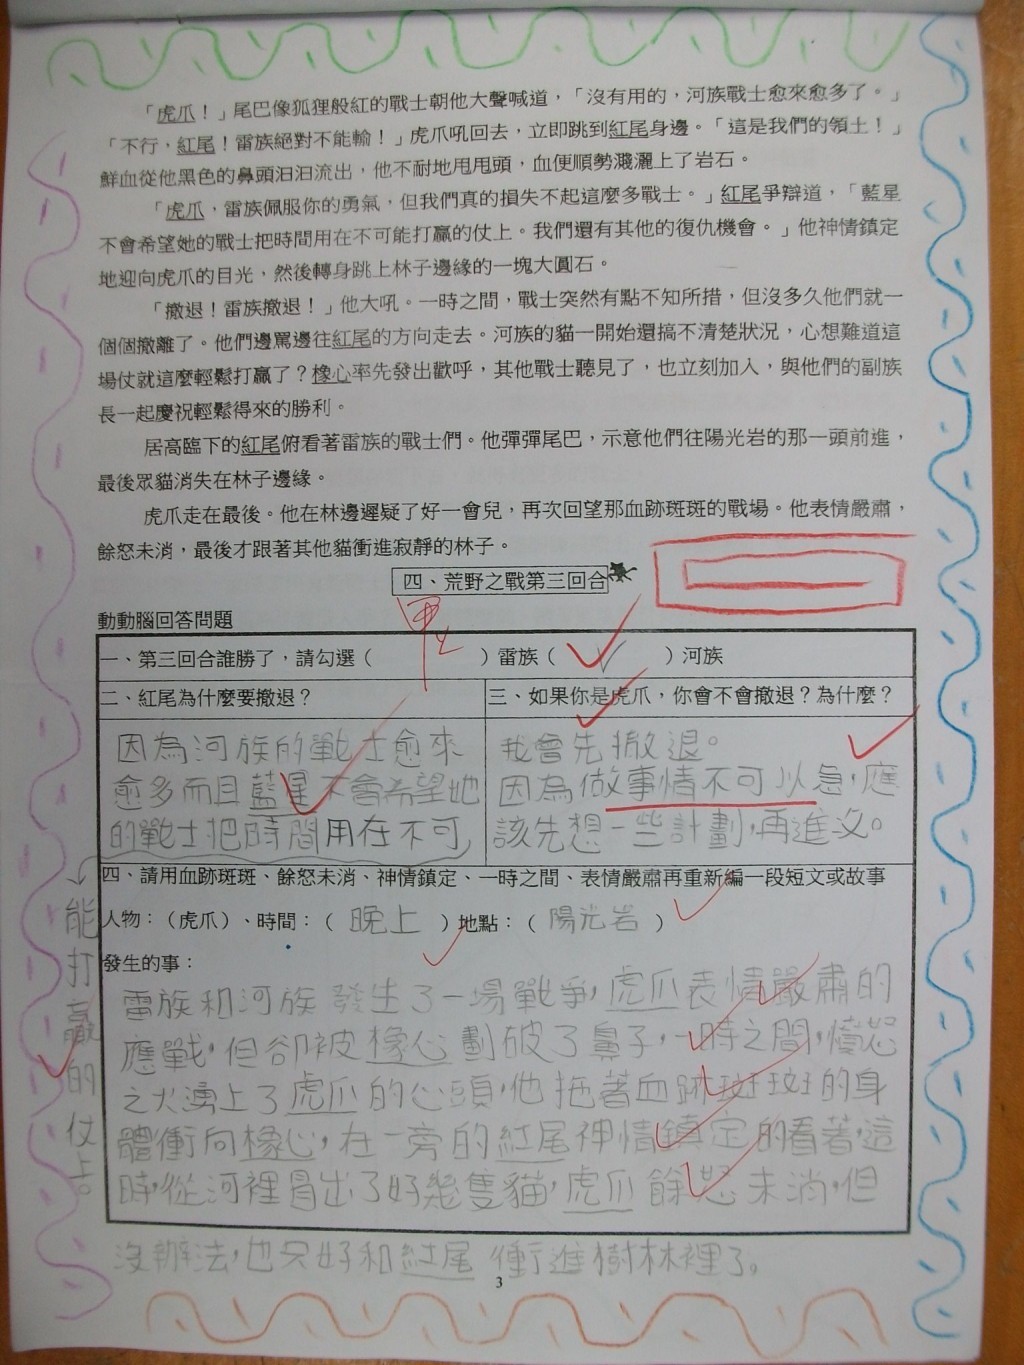 「虎爪！」尾巴像狐狸般紅的戰士朝他大聲喊道，「沒有用的，河族戰士愈來愈多了。」
「不行，紅尾！雷族絕對不能輸！」虎爪吼回去，立即跳到紅尾身邊。「這是我們的領土！」
鮮血從他黑色的鼻頭汩汩流出，他不耐地甩甩頭，血便順勢濺灑上了岩石。
「虎爪，雷族佩服你的勇氣，但我們真的損失不起這麼多戰士。」紅尾爭辯道，「藍星
不會希望她的戰士把時間用在不可能打贏的仗上。我們還有其他的復仇機會。」他神情鎮定
地迎向虎爪的目光，然後轉身跳上林子邊緣的一塊大圓石。
「撤退！雷族撤退！」他大吼。一時之間，戰士突然有點不知所措，但沒多久他們就一
個個撤離了。他們邊罵邊往紅尾的方向走去。河族的貓一開始還搞不清楚狀況，心想難道這
場仗就這麼輕鬆打贏了？橡心率先發出歡呼，其他戰士聽見了，也立刻加入，與他們的副族
長一起慶祝輕鬆得來的勝利。
居高臨下的紅尾俯看著雷族的戰士們。他彈彈尾巴，示意他們往陽光岩的那一頭前進，
最後眾貓消失在林子邊緣。
虎爪走在最後。他在林邊遲疑了好一會兒，再次回望那血跡斑斑的戰場。他表情嚴肅，
餘怒未消，最後才跟著其他貓衝進寂靜的林子。
四、荒野之戰第三回合
動動腦回答問題
一、第三回合誰勝了，請勾選（ ）雷族（ ✓ ）河族
二、紅尾為什麼要撤退？
因為河族的戰士愈來
愈多而且藍星不會希望她
的戰士把時間用在不可
能打贏的仗上。
三、如果你是虎爪，你會不會撤退？為什麼？
我會先撤退。
因為做事情不可以急，應
該先想一些計劃，再進攻。
四、請用血跡斑斑、餘怒未消、神情鎮定、一時之間、表情嚴肅再重新編一段短文或故事
人物：（虎爪）、時間：（ 晚上 ）地點：（ 陽光岩 ）
發生的事：
雷族和河族發生了一場戰爭，虎爪表情嚴肅的
應戰，但卻被橡心劃破了鼻子，一時之間，憤怒
之火湧上了虎爪的心頭，他拖著血跡斑斑的身
體衝向橡心，在一旁的紅尾神情鎮定的看著，這
時，從河裡冒出了好幾隻貓，虎爪餘怒未消，但
沒辦法，也只好和紅尾衝進樹林裡了。
3